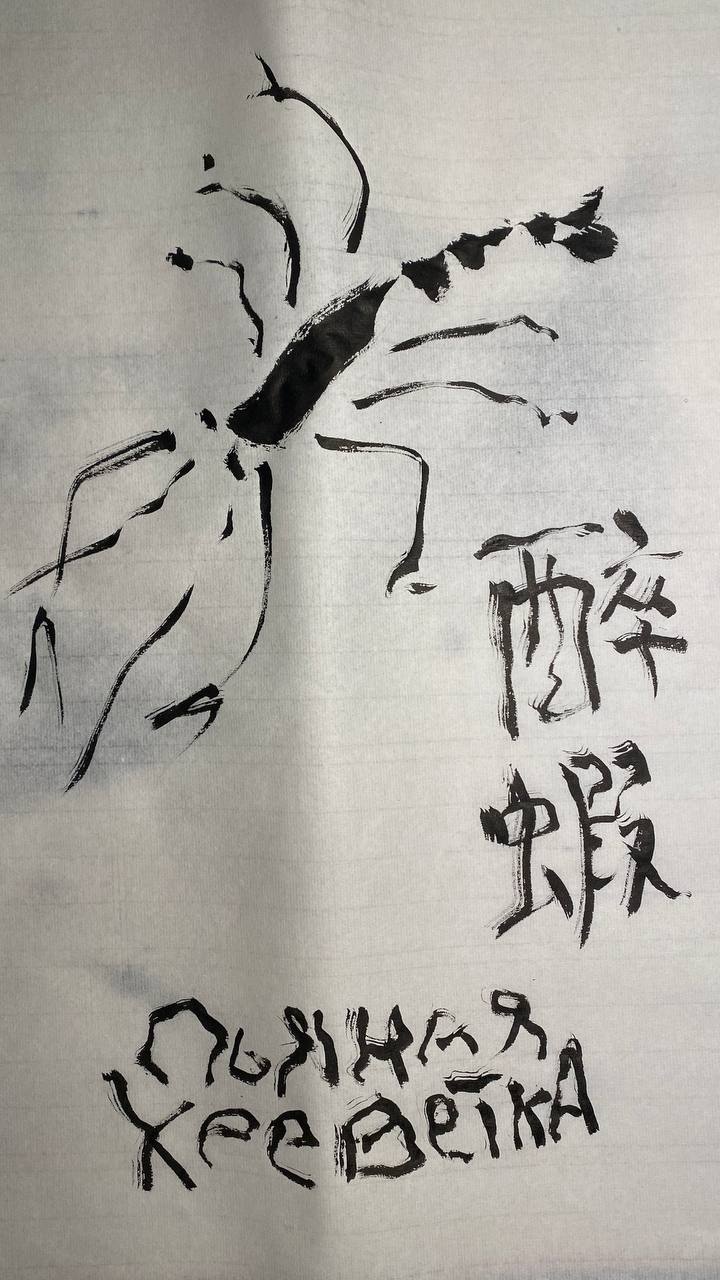 醉
蝦
Пьяная
Хееветка